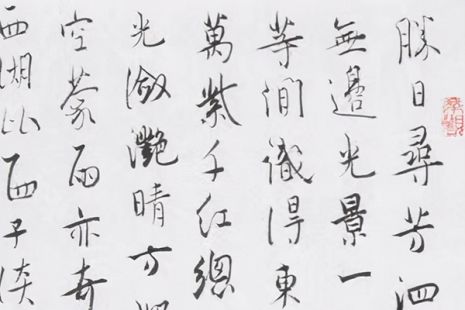 勝日尋芳泗
無邊光景一
等閒識得東
萬紫千紅總
光瀲灩晴方
空蒙雨亦奇
西湖比西子淡